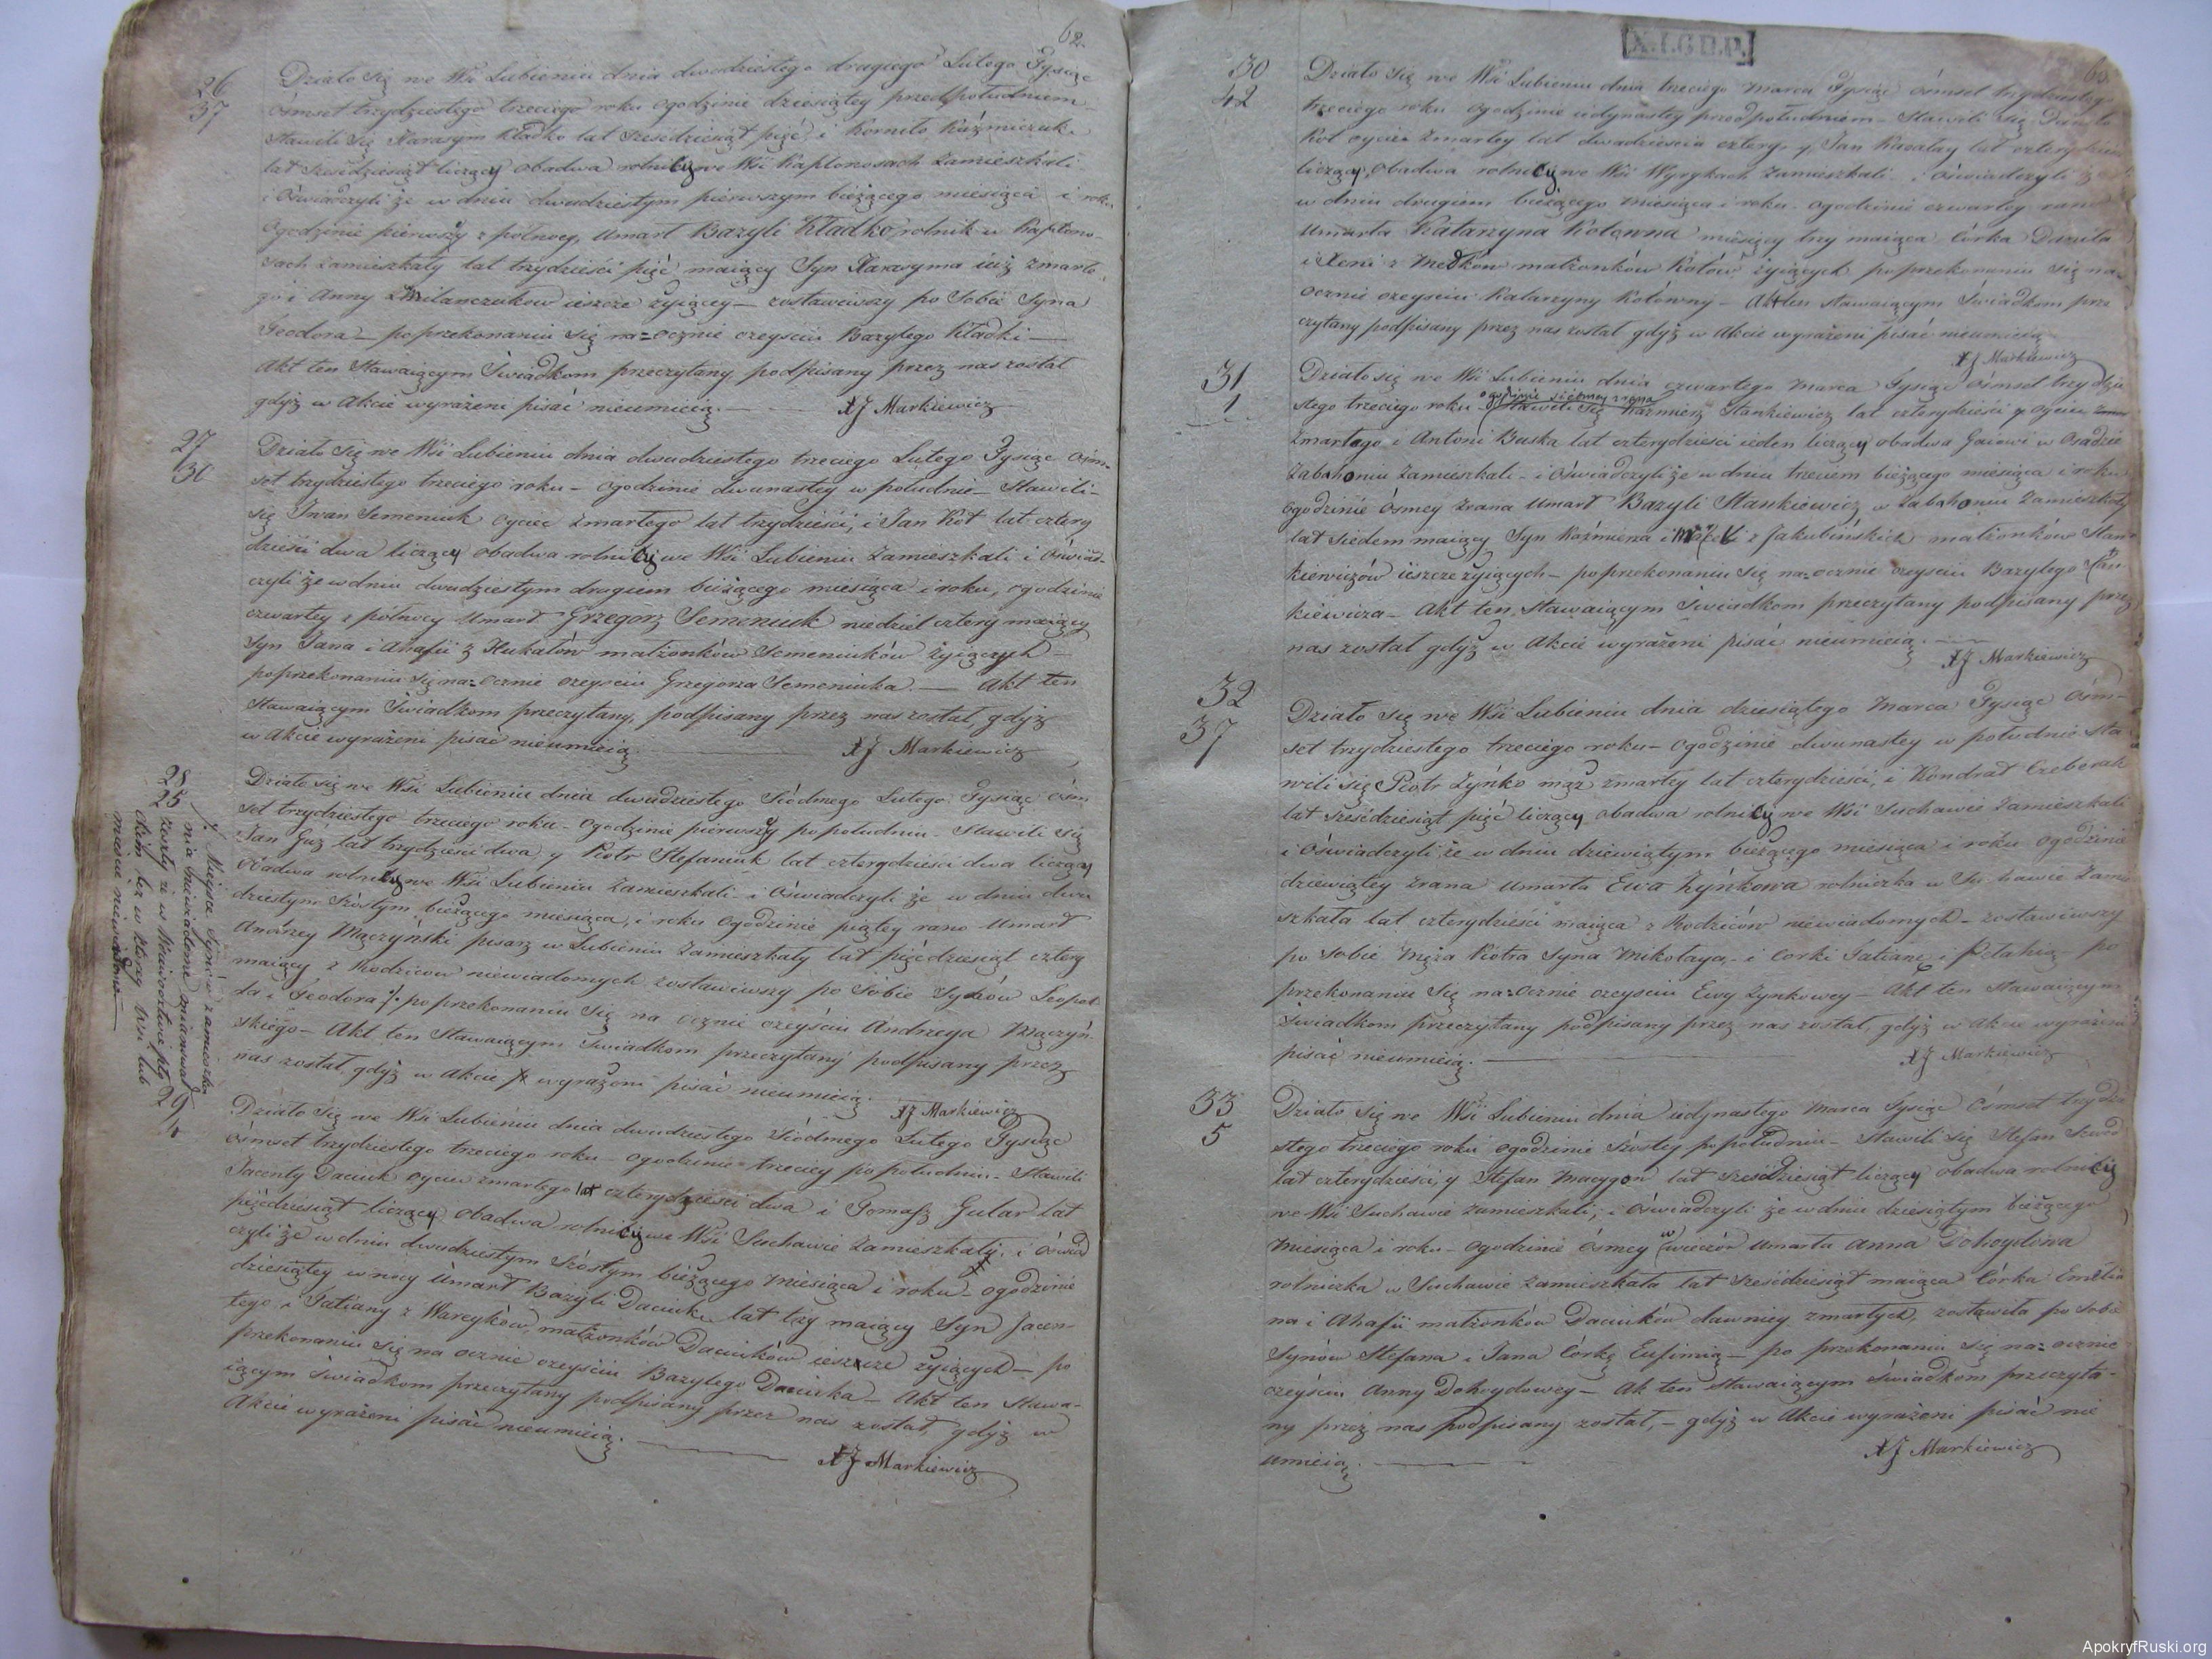 62.
26
37
Działo się we Wsi Lubieniu dnia dwudziestego drugiego Lutego Tysiąc
Ośmset trzydziestego trzeciego roku ogodzinie dziesiątey przedpołudniem
Stawili się Harasym Kładko lat sześćdziesiąt pięć i Korniło Kuźmiczuk
lat sześćdziesiąt liczący obadwa rolnicy we Wsi Kaplonosach zamieszkali
i Oświadczyli że w dniu dwudziestym pierwszym bieżącego miesiąca i roku
Ogodzinie pierwszy z północy, Umarł Bazyli Kładko rolnik w Kaplono-
sach zamieszkały lat trzydzieści pięć maiący Syn Harasyma iuż zmarłe
go i Anny z Milanczuków ieszcze żyiącey — zostawiwszy po Sobie Syna
Teodora — poprzekonaniu się na=ocznie ozeyściu Bazylego Kładki —
Akt ten Stawaiącym Świadkom przeczytany, podpisany przez nas został
gdyż w Akcie wyrażeni pisać nieumieią. — XJ Markiewicz
27
30
Działo się we Wsi Lubieniu dnia dwudziestego trzeciego Lutego Tysiąc Ośm-
set trzydziestego trzeciego roku — ogodzinie dwunastey w południe — Stawili-
się Iwan Semeniuk oyciec zmarłego lat trzydzieści, i Jan Kot lat cztery
dzieści dwa liczący obadwa rolnicy we Wsi Lubieniu zamieszkali i Oświad-
czyli że wdniu dwudziestym drugiem bieżącego miesiąca i roku, ogodzinie
czwartey z północy Umarł Grzegorz Semeniuk niedziel cztery maiący
Syn Jana i Ahafii z Hukałów małżonków Semeniuków żyiących —
poprzekonaniu się na=ocznie ozeyściu Grzegorza Semeniuka. — Akt ten
Stawaiącym Świadkom przeczytany, podpisany przez nas został, gdyż
w Akcie wyrażeni pisać nieumieią. — XJ Markiewicz
28
25
Działo się we Wsi Lubieniu dnia dwudziestego Siódmego Lutego Tysiąc Ośm
set trzydziestego trzeciego roku — Ogodzinie pierwszy popołudniu — Stawili się
Jan Guz lat trzydzieści dwa, y Piotr Stefaniuk lat czterydzieści dwa liczący
Obadwa rolnicy we Wsi Lubieniu zamieszkali — i Oświadczyli że w dniu dwu
dziestym Szóstym bieżącego miesiąca, i roku Ogodzinie piątey rano Umarł
Andrzey Mączyński pisarz w Lubieniu zamieszkały lat pięćdziesiąt cztery
maiący z Rodziców niewiadomych zostawiwszy po Sobie Synów Leopol
da i Teodora ./. poprzekonaniu się na ocznie ozeyściu Andrzeya Mączyń-
skiego — Akt ten Stawaiącym Świadkom przeczytany podpisany przez
nas został, gdyż w Akcie wyrażeni pisać nieumieią. —
XJ Markiewicz
./. Mieysce Synów zamieszka
nia niewiadome, mianował
zwarły że w Woiewodztwie
lecz w który Wsi lub
mieście niewiadomo —
29
Działo się we Wsi Lubieniu dnia dwudziestego Siódmego Lutego Tysiąc
Ośmset trzydziestego trzeciego roku — ogodzinie trzeciey popołudniu — Stawili
Jacenty Daciuk oyciec zmarłego lat czterydzieści dwa i Tomasz Gular lat
pięćdziesiąt liczący obadwa rolnicy we Wsi Suchawie zamieszkaly, i Oświad
czyli że wdniu dwudziestym Szóstym bieżącego miesiąca i roku — ogodzinie
dziesiątey wnocy Umarł Bazyli Daciuk lat trzy maiący Syn Jacen-
tego i Tatiany z Warcyków małżonków Daciuków ieszcze żyiących — po
przekonaniu się na ocznie ozeyściu Bazylego Daciuka — Akt ten Stawa-
iącym Świadkom przeczytany podpisany przez nas został, gdyż w
Akcie wyrażeni pisać nieumieią. —
XJ Markiewicz
X.I.G.D.P.
63
30
42
Działo się we Wsi Lubieniu dnia trzeciego Marca Tysiąc Ośmset trzydziestego
trzeciego roku ogodzinie iedynastey przedpołudniem — Stawili się Daniło
Kot oyciec zmarłey lat dwadzieścia cztery, y Jan lat czterydzieści
liczący, obadwa rolnicy we Wsi Wyrykach zamieszkali — i Oświadczyli że
w dniu drugiem bieżącego miesiąca i roku. ogodzinie czwartey rano
Umarła Katarzyna Kotówna miesięcy trzy maiąca Córka Daniła
i Xeni z Medków małżonków Kotów żyiących poprzekonaniu się na-
ocznie ozeyściu Katarzyny Kotówny — Akt ten stawaiącym Świadkom prze
czytany podpisany przez nas został gdyż w Akcie wyrażeni pisać nieumieią
XJ Markiewicz
31
1
Działo się we Wsi Lubieniu dnia czwartego Marca Tysiąc Ośmset trzydzie
ogodzinie siódmey zrana
stego trzeciego roku Stawili się Kaźmierz Stankiewicz lat czterydzieści y oyciec
zmarłego i Antoni Buska lat czterydzieści ieden liczący obadwa Gaiowi w Osadzie
Zabahoniu zamieszkali — i Oświadczyli że w dniu trzeciem bieżącego miesiąca i roku
ogodzinie Ósmey zrana Umarł Bazyli Stankiewicz w Zabahoniu zamieszkały
lat siedem maiący Syn Kaźmierza i z Jakubińskich małżonków Stan-
kiewiczów ieszcze żyiących — poprzekonaniu się na=ocznie ozeyściu Bazylego Stan-
kiewicza — Akt ten Stawaiącym Świadkom przeczytany podpisany przez
nas został gdyż w Akcie wyrażeni pisać nieumieią. —
XJ Markiewicz
32
37
Działo się we Wsi Lubieniu dnia dziesiątego Marca Tysiąc Ośm-
set trzydziestego trzeciego roku — Ogodzinie dwunastey w południe sta
wili się Piotr Zyńko mąż zmarłey lat czterydzieści, i Kondrat Czeberak
lat sześćdziesiąt pięć liczący obadwa rolnicy we Wsi Suchawie zamieszkali
i Oświadczyli że w dniu dziewiątym bieżącego miesiąca i roku ogodzinie
dziewiątey zrana Umarła Ewa Zyńkowa rolniczka w Suchawie zamie
szkała lat czterydzieści maiąca z Rodziców niewiadomych — zostawiwszy
po Sobie Męża Piotra Syna Mikołaya, — i Corki Tatiane, i Pelahią — po
przekonaniu się na=ocznie ozeyściu Ewy Zynkowey — Akt ten Stawaiącym
Świadkom przeczytany podpisany przez nas został, gdyż w Akcie wyrażeni
pisać nieumieią. —
XJ Markiewicz
33
5
Działo się we Wsi Lubieniu dnia iedynastego Marca Tysiąc Ośmset trzydzie
stego trzeciego roku ogodzinie Szóstey popołudniu — Stawili się Stefan
lat czterydzieści, y Stefan Macygon lat sześćdziesiąt liczący obadwa rolnicy
we Wsi Suchawie zamieszkali, i Oświadczyli że wdniu dziesiątym bieżącego
Miesiąca i roku — ogodzinie Ósmey w wieczór Umarła Anna Dohoydowa
rolniczka w Suchawie zamieszkała lat sześćdziesiąt maiąca Córka Emilia
na i Ahafii małżonków Daciuków dawniey zmarłych, zostawiła po Sobie
Synów Stefana i Jana Córkę Eufimią — po przekonaniu się na=ocznie
ozeyściu Anny Dohoydowey — Ak ten stawaiącym świadkom przeczyta-
ny przez nas podpisany został, — gdyż w Akcie wyrażeni pisać nie
umieią. —
XJ Markiewicz
ApokryfRuski.org